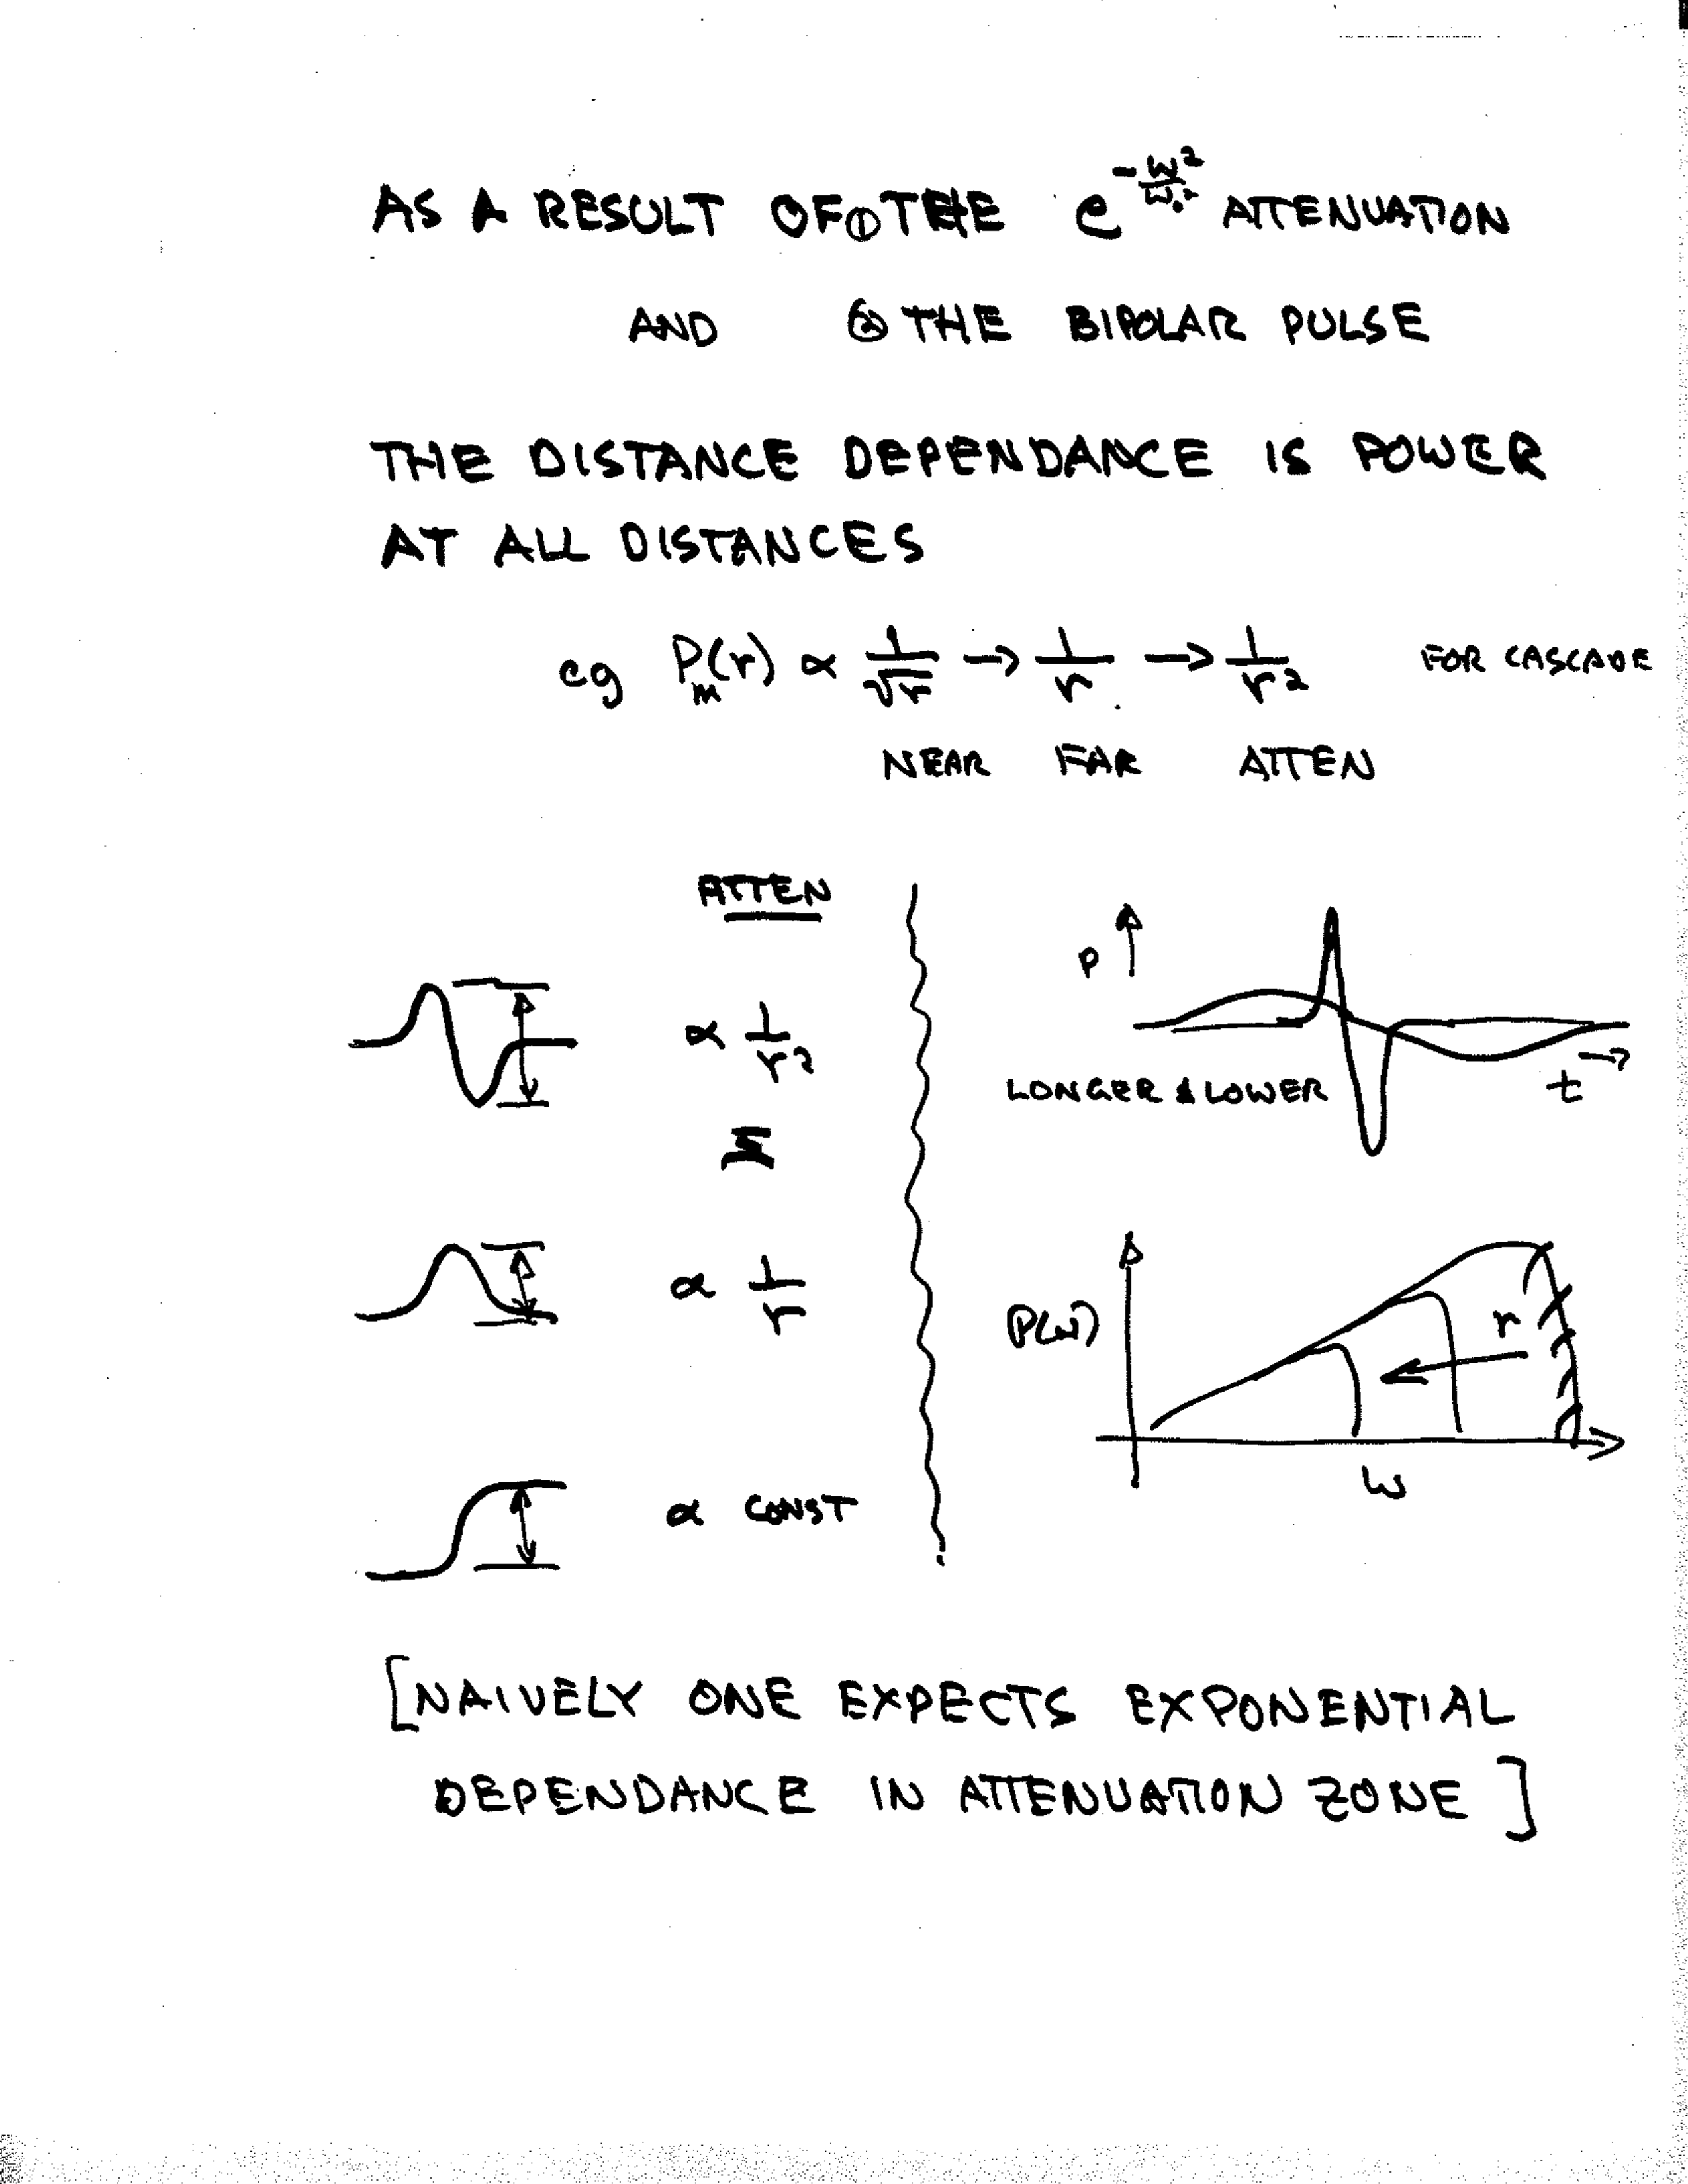 AS A RESULT OF ① THE e^{-ω²/ω₀²} ATTENUATION
AND ② THE BIPOLAR PULSE
THE DISTANCE DEPENDANCE IS POWER
AT ALL DISTANCES
eg Pₘ(r) ∝ 1/√r → 1/r → 1/r² FOR CASCADE
NEAR FAR ATTEN
ATTEN
∝ 1/r²
∝ 1/r
∝ CONST
P
LONGER & LOWER
t →
P(ω)
r
ω
[NAIVELY ONE EXPECTS EXPONENTIAL
DEPENDANCE IN ATTENUATION ZONE]